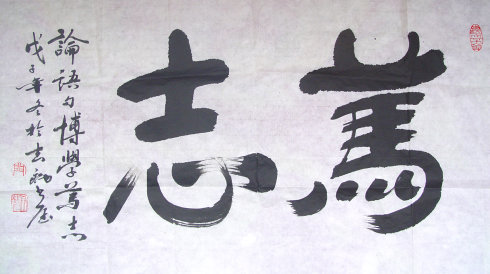 篤志
論語句博學篤志
戊子年冬於